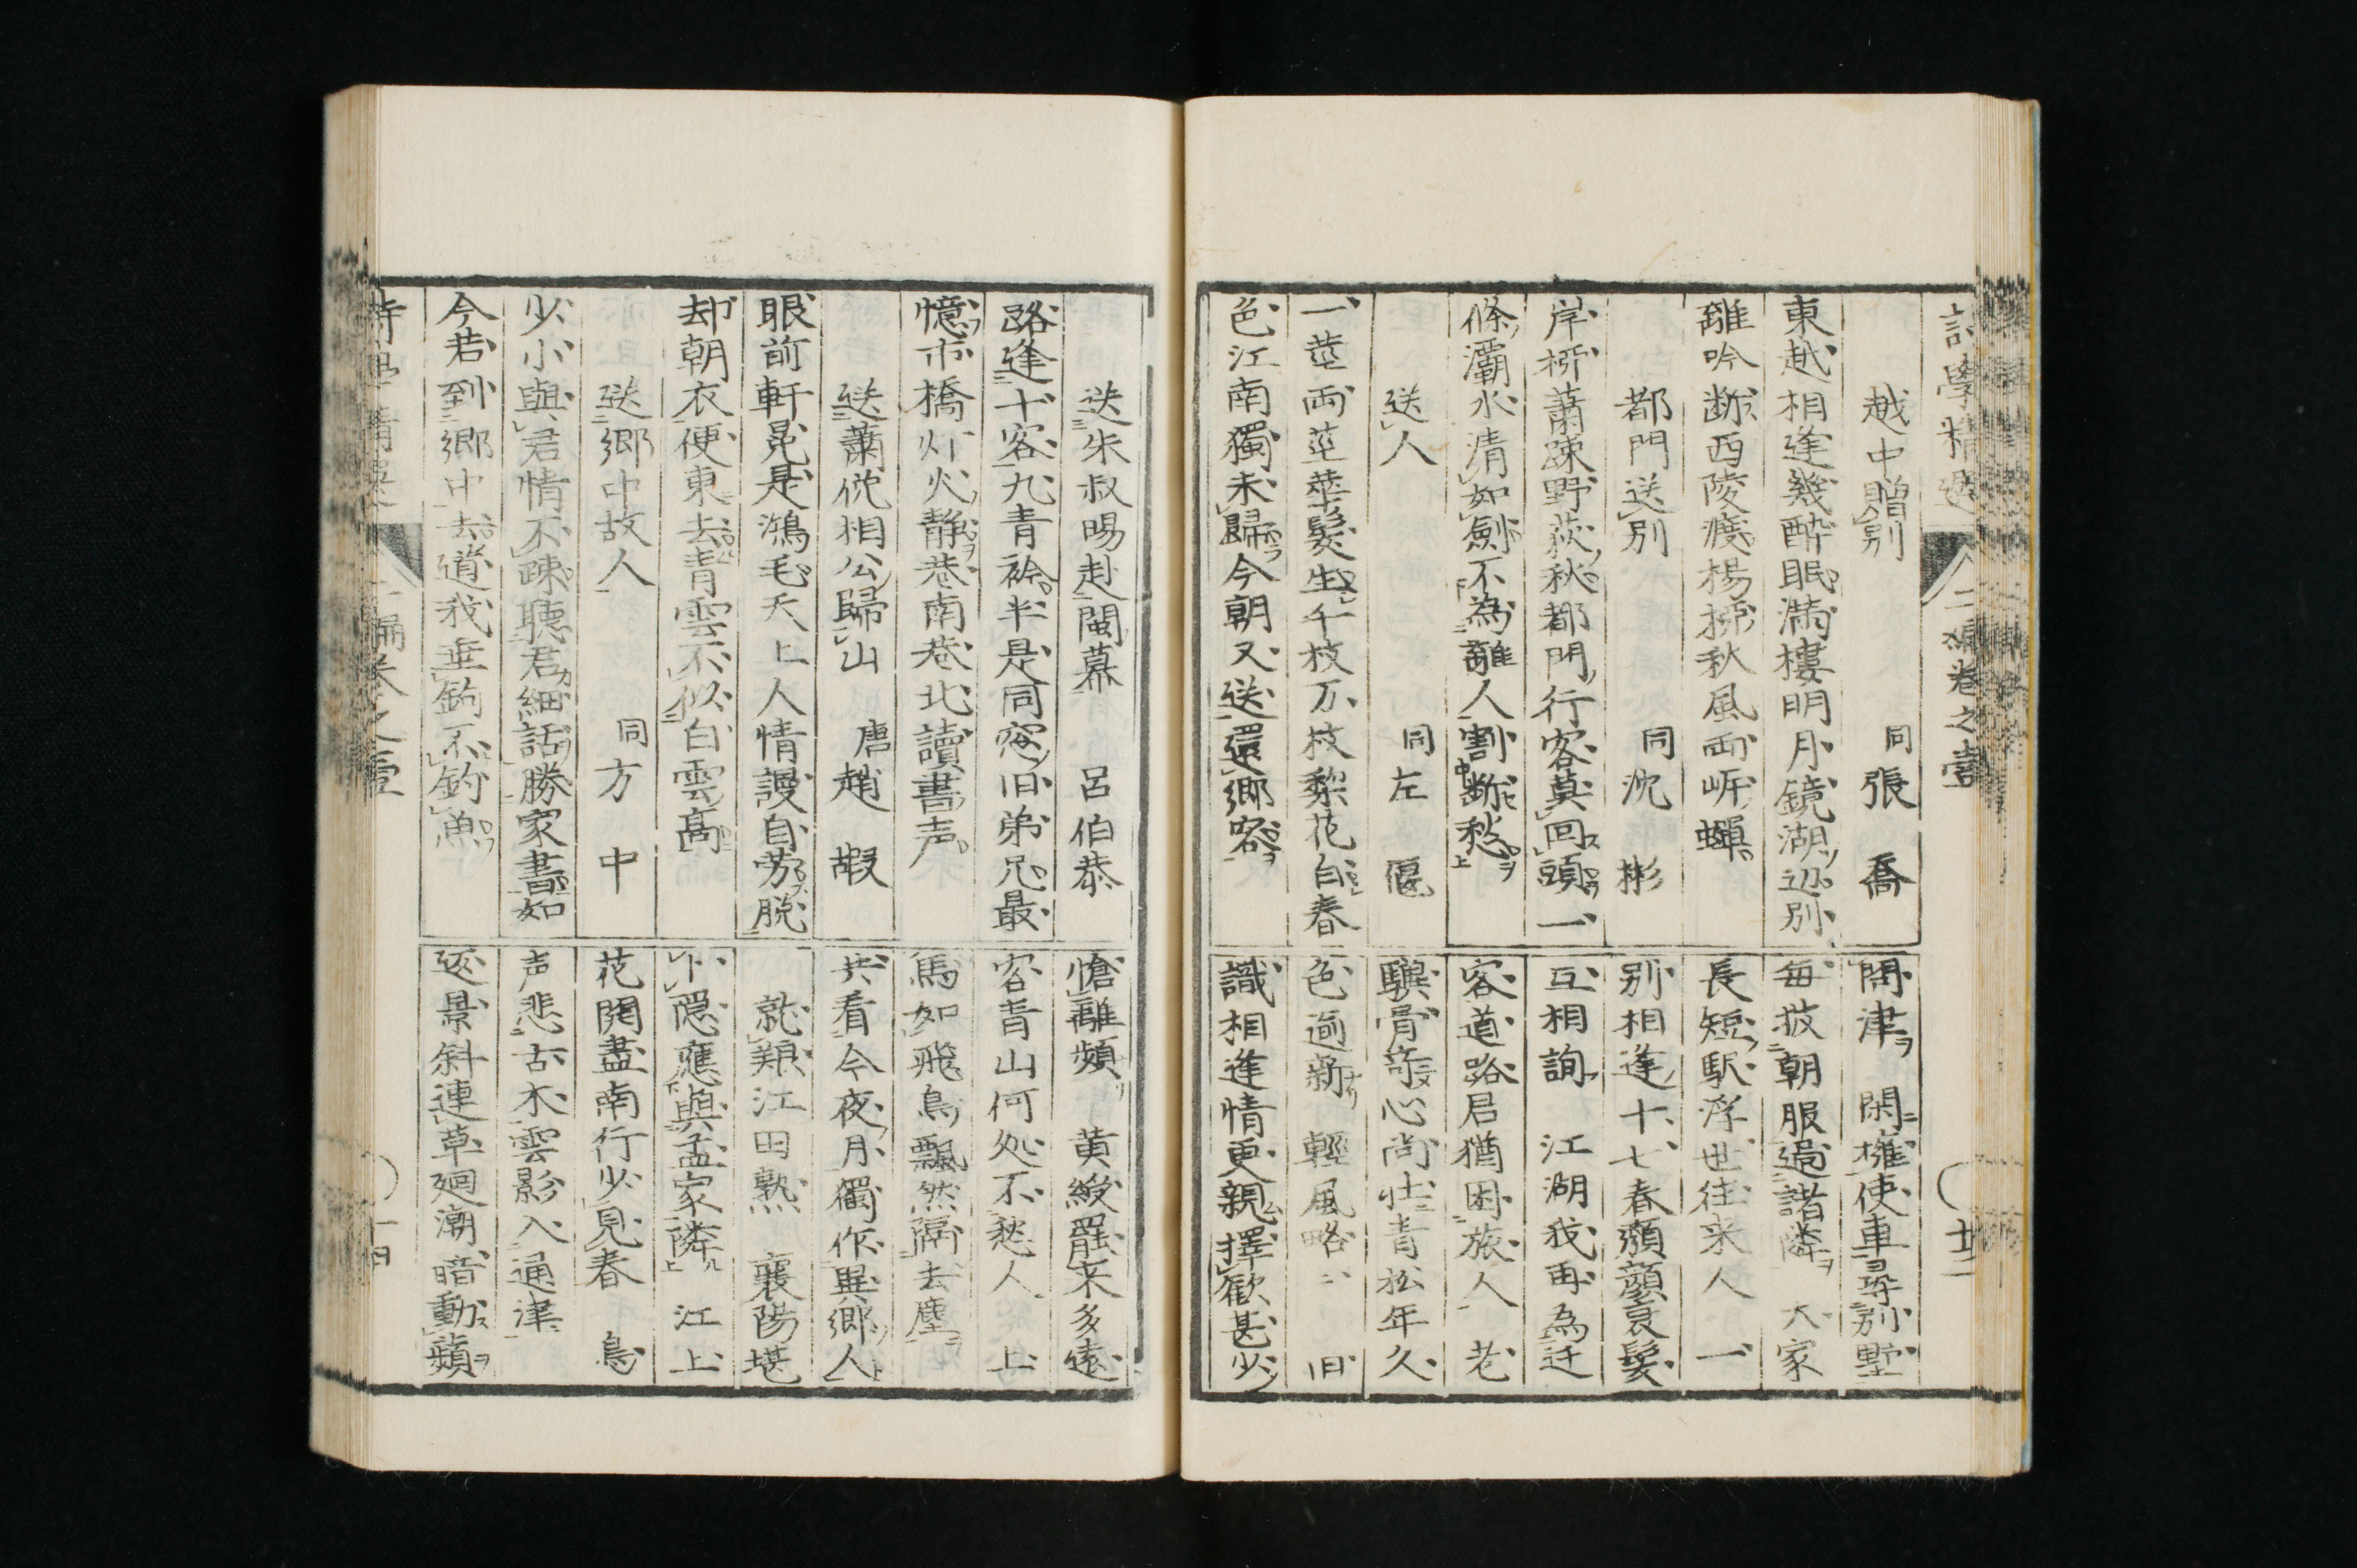 詩學精選 二編卷之壹
越中贈別 同 張喬
東越相逢幾醉眠満樓明月鏡湖辺別
離吟断西陵渡楊柳秋風両岸蟬
都門送別 同 沈彬
岸柳蕭踈野荻秋都門行客莫回頭一
條灞水清如劍不為離人割断愁
送人 同 左偃
一莖両莖華髮生千枝万枝梨花白春
色江南獨未歸今朝又送還郷客
問津 閑擁使車尋別墅
毎披朝服過諸隣 大家
長短駅浮世往来人 一
別相逢十七春頽顔衰髮
互相詢 江湖我再為迁
客道路君猶困旅人 老
驥骨竒心尚壮青松年久
色逾新 輕風略〻 旧
識相逢情更親擇歓甚少
送朱叔暘赴閩幕 呂伯恭
路逢十客九青衿半是同窓旧弟兄最
憶市橋灯火静巷南巷北讀書声
送蕭侻相公歸山 唐 趙嘏
眼前軒冕是鴻毛天上人情謾自労脱
却朝衣便東去青雲不似白雲高
送郷中故人 同 方中
少小與君情不踈聽君細話勝家書如
今若到郷中去道我垂釣不釣魚
愴離頻 黄綬罷来多遠
客青山何処不愁人 上
馬如飛鳥飄然隔去塵
共看今夜月獨作異郷人
就艱江田熟 襄陽堪
卜隠應與孟家隣 江上
花開盡南行少見春 鳥
声悲古木雲影入通津
返景斜連草廻潮暗動蘋